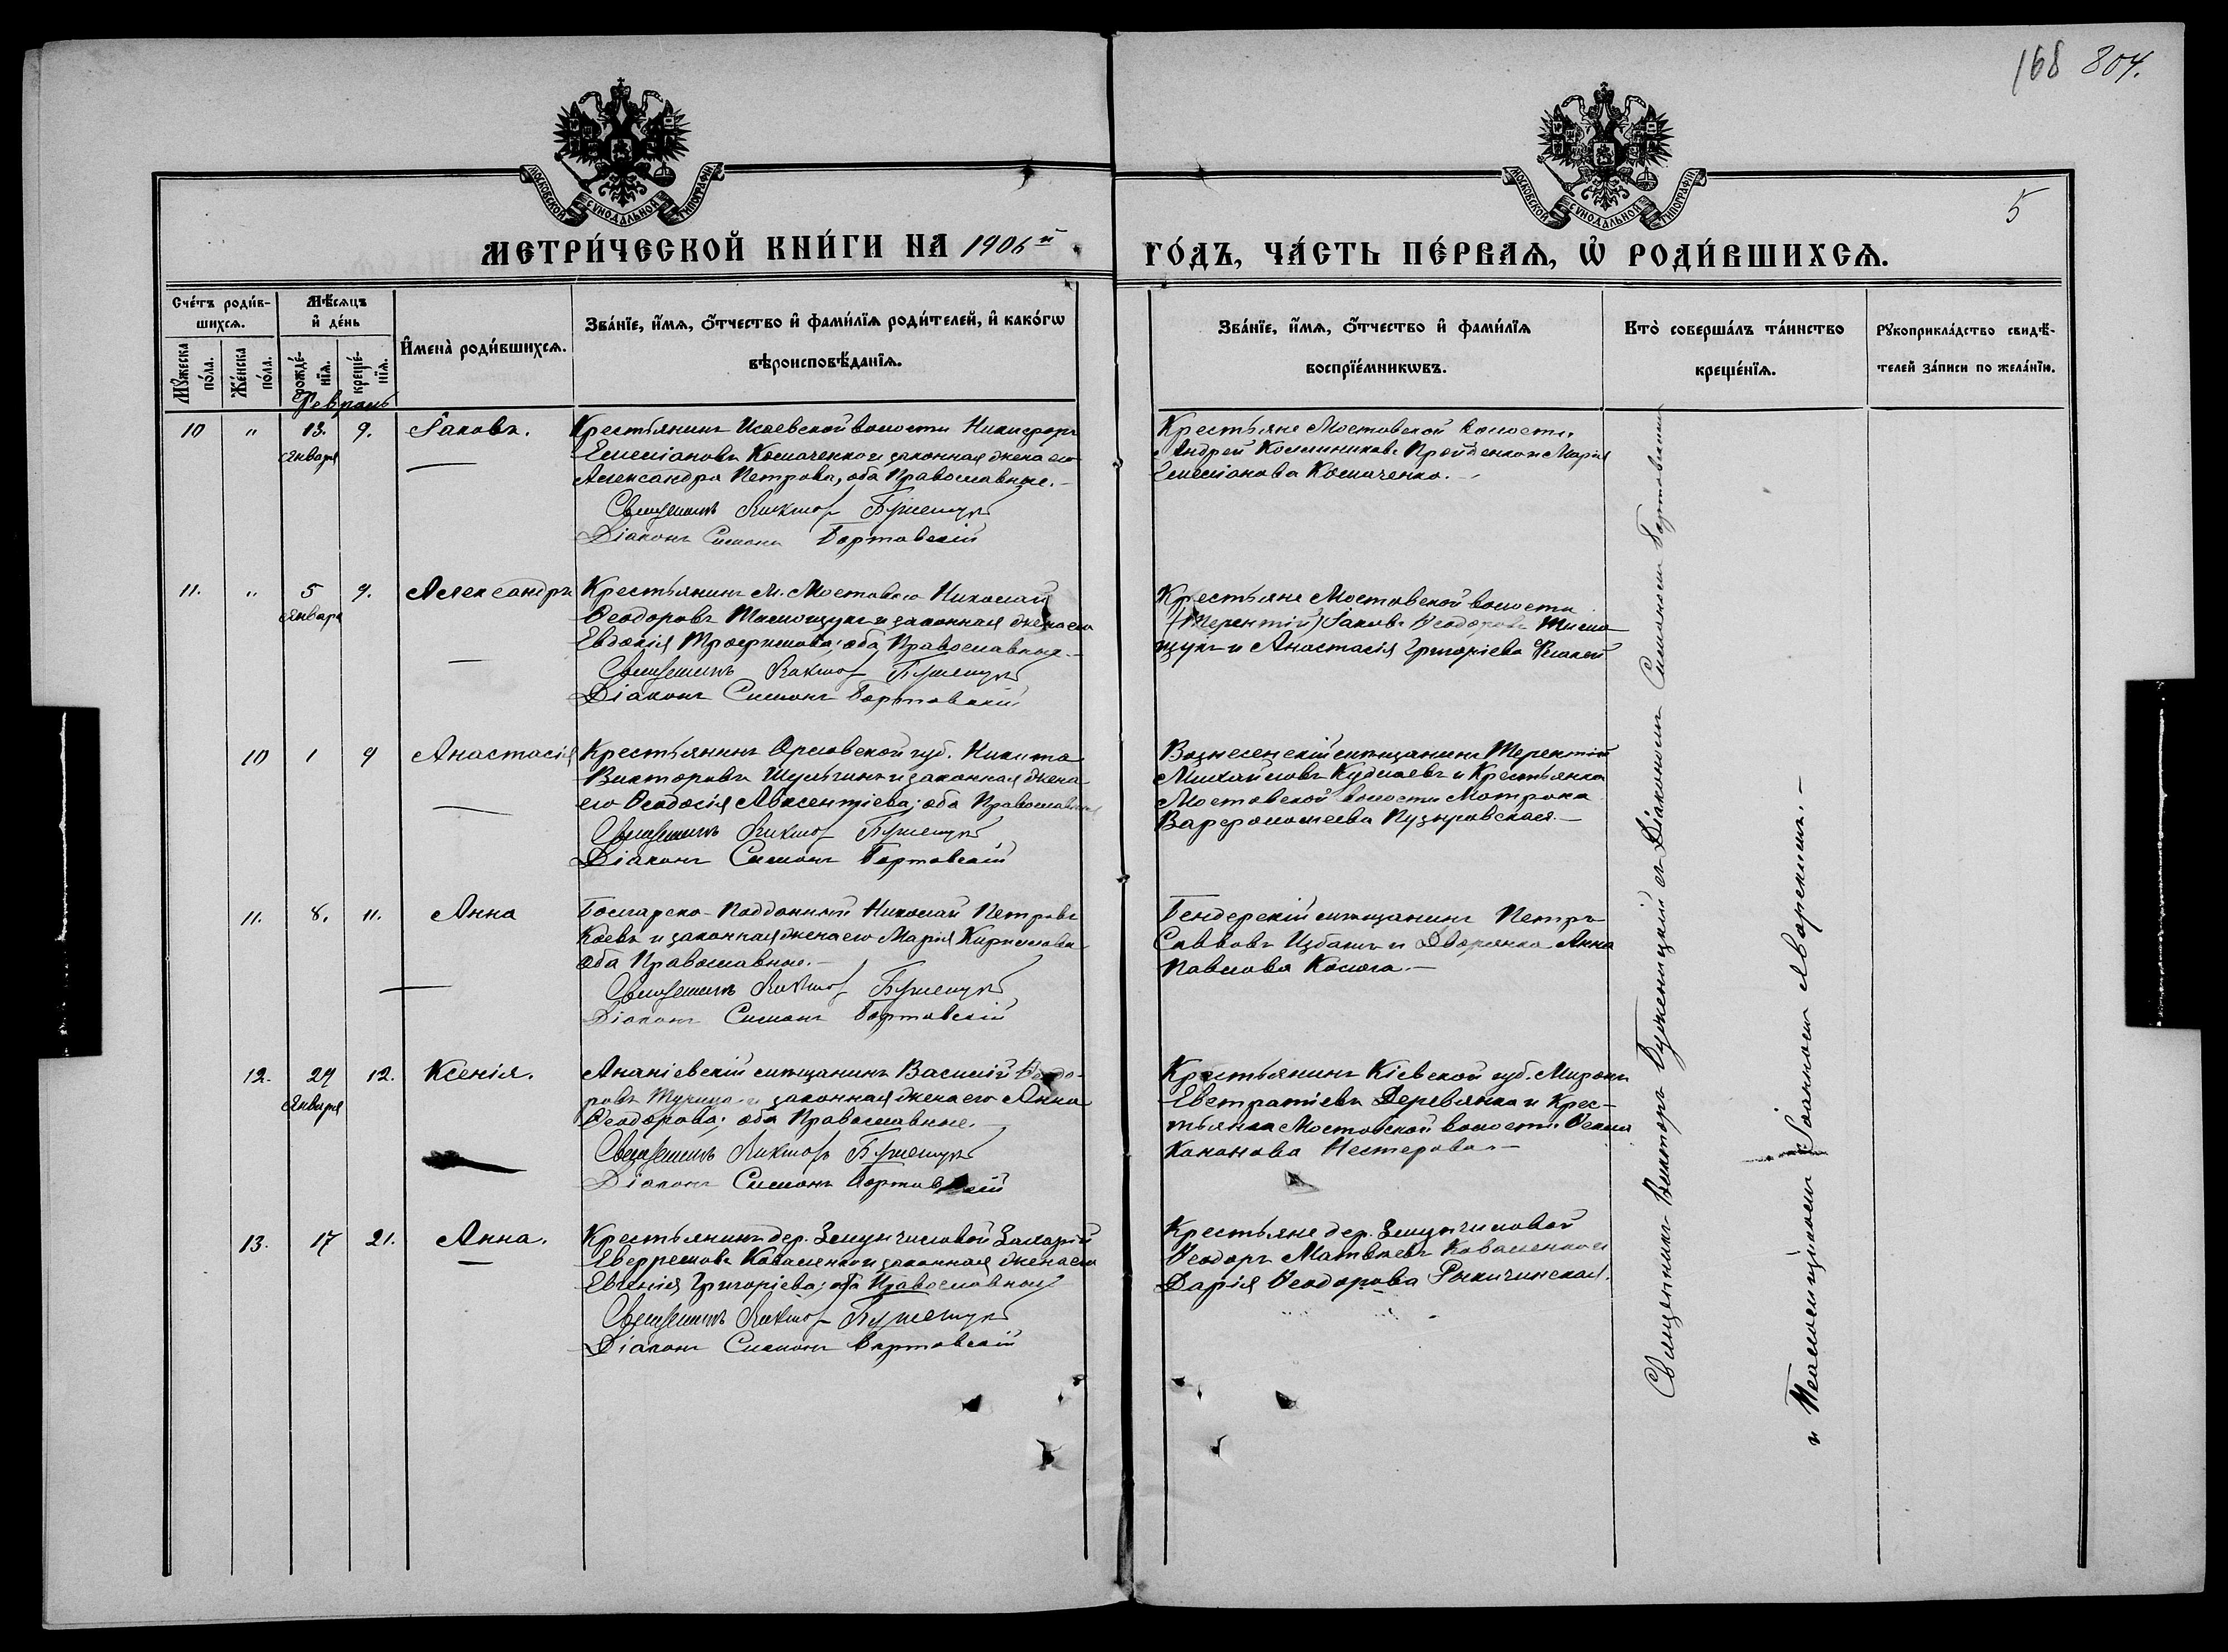 168 804.
5
МОСКОВСКОЙ СѴНОДАЛЬНОЙ ТИПОГРАФІИ
МОСКОВСКОЙ СѴНОДАЛЬНОЙ ТИПОГРАФІИ
МЕТРИ́ЧЕСКОЙ КНИ́ГИ НА 1906й
ГО́ДЪ, ЧА́СТЬ ПЕ́РВАѦ, Ѡ҆ РОДИ́ВШИХСѦ.
Сче́тъ роди́в-
шихсѧ.
Мꙋ́жеска по́ла.
Же́нска по́ла.
Мѣ́сѧцъ
и҆ де́нь
рожде́-нїѧ.
креще́-нїѧ.
И҆мена̀ роди́вшихсѧ.
Зва́нїе, и҆́мѧ, ѻ҆́тчество и҆ фами́лїѧ роди́телей, и҆ како́гѡ
вѣроисповѣ́данїѧ.
Зва́нїе, и҆́мѧ, ѻ҆́тчество и҆ фами́лїѧ
воспрїе́мникѡвъ.
Кто̀ соверша́лъ та́инство
креще́нїѧ.
Рꙋкоприкла́дство свидѣ́-
телей за́писи по жела́нїю.
Февраль
10 " 13. 9. Іаковъ.
Января
Крестьянинъ Исаевской волости Никифоръ
Емеліановъ Косаченко и законная жена его
Александра Петрова, оба Православные.
Священникъ Викторъ
Діаконъ Симонъ Бортовскій
Крестьяне Мостовской волости
Андрей и Марія
Емеліанова Косаченко.
11. " 5 9. Александръ
Января
Крестьянинъ м. Мостоваго Николай
Ѳеодоровъ Тимощукъ и законная жена его
Евдокія Трофимова; оба Православные.
Священникъ Викторъ
Діаконъ Симонъ Бортовскій
Крестьяне Мостовской волости
(Терентій) Іаковъ Ѳеодоровъ Тимо-
щукъ и Анастасія Григоріева
10 1 9 Анастасія
Крестьянинъ Орловской губ. Никита
Викторовъ Шульгинъ и законная жена
его Ѳеодосія Авксентіева; оба Православные
Священникъ Викторъ
Діаконъ Симонъ Бортовскій
Вознесенскій мѣщанинъ Терентій
Михайловъ и Крестьянка
Мостовской волости Мотрона
Варфоломеева Пузыровская.
11. 8. 11. Анна
Болгарско-Подданный Николай Петровъ
Коевъ и законная жена его Марія Кириллова
оба Православные.
Священникъ Викторъ
Діаконъ Симонъ Бортовскій
Бендерскій мѣщанинъ Петръ
Саввовъ Избашъ и Дворянка Анна
Павлова
12. 29 12. Ксенія.
Января
Ананіевскій мѣщанинъ Василій Ѳеодо-
ровъ и законная жена его Анна
Ѳеодорова; оба Православные.
Священникъ Викторъ
Діаконъ Симонъ Бортовскій
Крестьянинъ Кіевской губ. Миронъ
Евстратіевъ Деревянко и Крес-
тьянка Мостовской волости
Кононова Нестерова.
13. 17 21. Анна.
Крестьянинъ дер. Захарій
Коваленко и законная жена его
Евгенія Григоріева; оба Православные
Священникъ Викторъ
Діаконъ Симонъ Бортовскій
Крестьяне дер.
Ѳеодоръ Матвѣевъ Коваленко и
Дарія Ѳеодорова
Священникъ Викторъ съ Діакономъ Симономъ Бортовскимъ
и Псаломщикомъ Іоанномъ Яворскимъ.